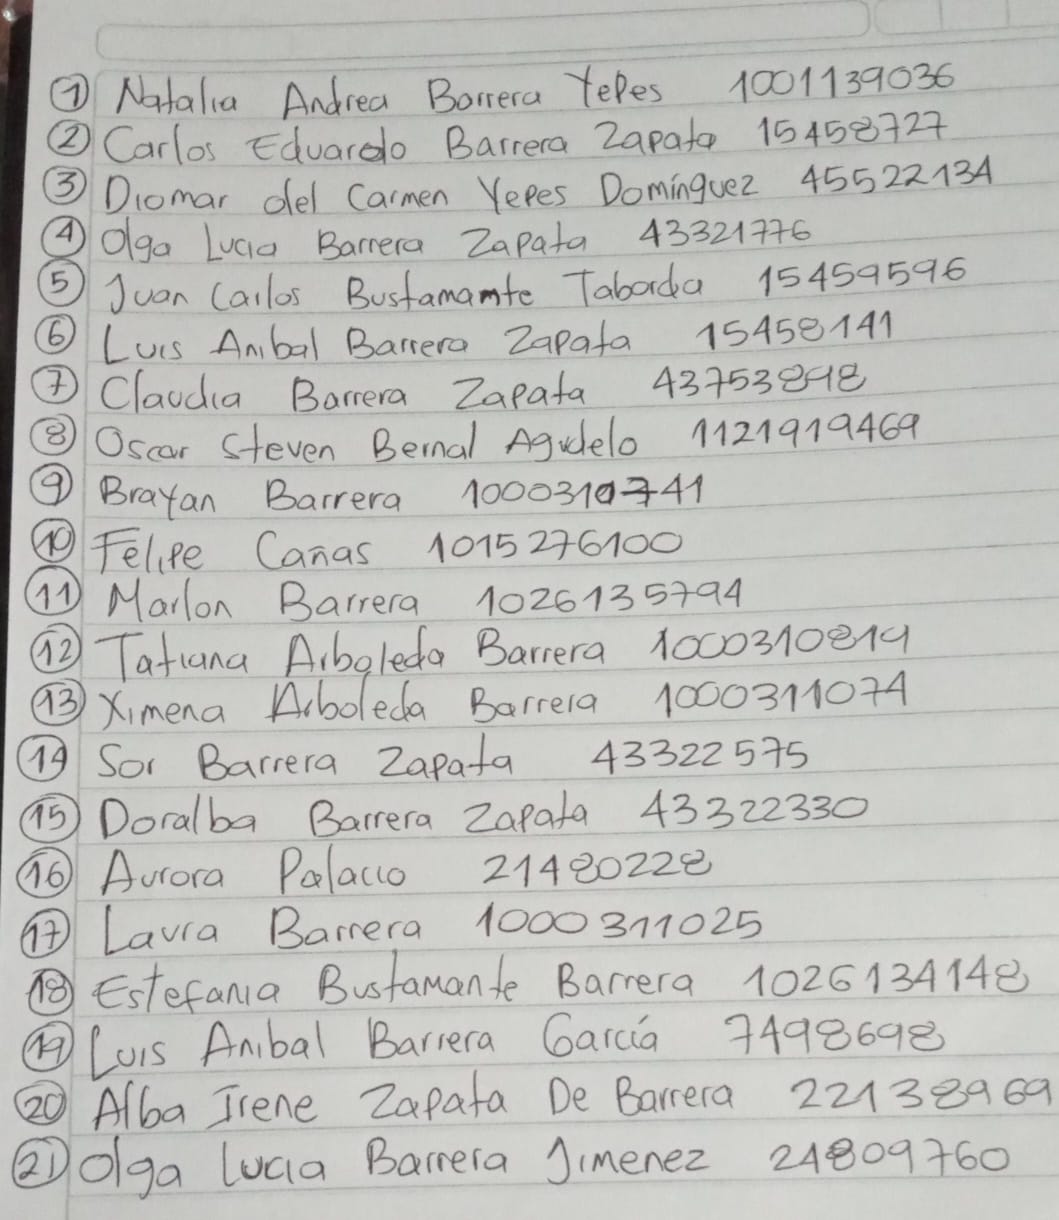 1 Natalia Andrea Barrera Yepes 1001139036
2 Carlos Eduardo Barrera Zapata 15458727
3 Diomar del Carmen Yepes Domínguez 45522134
4 Olga Lucia Barrera Zapata 43321776
5 Juan Carlos Bustamamte Taborda 15459596
6 Luis Anibal Barrera Zapata 15458141
7 Claudia Barrera Zapata 43753898
8 Oscar Steven Bernal Agudelo 1121919469
9 Brayan Barrera 1000310741
10 Felipe Cañas 1015276100
11 Marlon Barrera 1026135794
12 Tatiana Arboleda Barrera 1000310819
13 Ximena Arboleda Barrera 1000311074
14 Sor Barrera Zapata 43322575
15 Doralba Barrera Zapata 43322330
16 Aurora Palacio 21480228
17 Laura Barrera 1000311025
18 Estefania Bustamante Barrera 1026134148
19 Luis Anibal Barrera García 7498698
20 Alba Irene Zapata De Barrera 22138969
21 Olga Lucia Barrera Jimenez 24809760